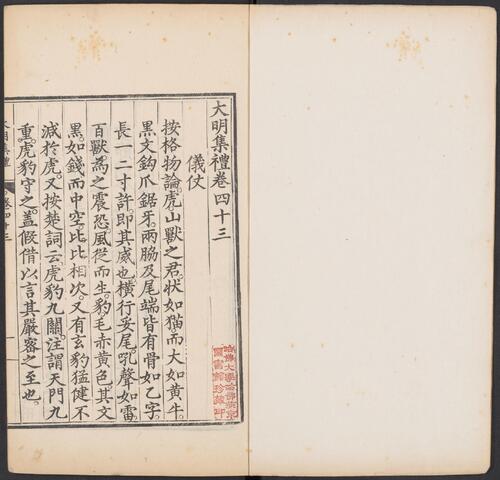 大明集禮卷四十三
儀仗
按格物論虎山獸之君狀如猫而大如黄牛
黑文鉤爪鋸牙兩脇及尾端皆有骨如乙字
長一二寸許即其威也橫行妥尾吼聲如雷
百獸為之震恐風從而生豹毛赤黄色其文
黑如錢而中空比比相次又有玄豹猛健不
減於虎又按楚詞云虎豹九關注謂天門九
重虎豹守之蓋假借以言其嚴密之至也
大明集禮
卷四十三
一
哈佛大學哈佛燕京
圖書館珍藏印